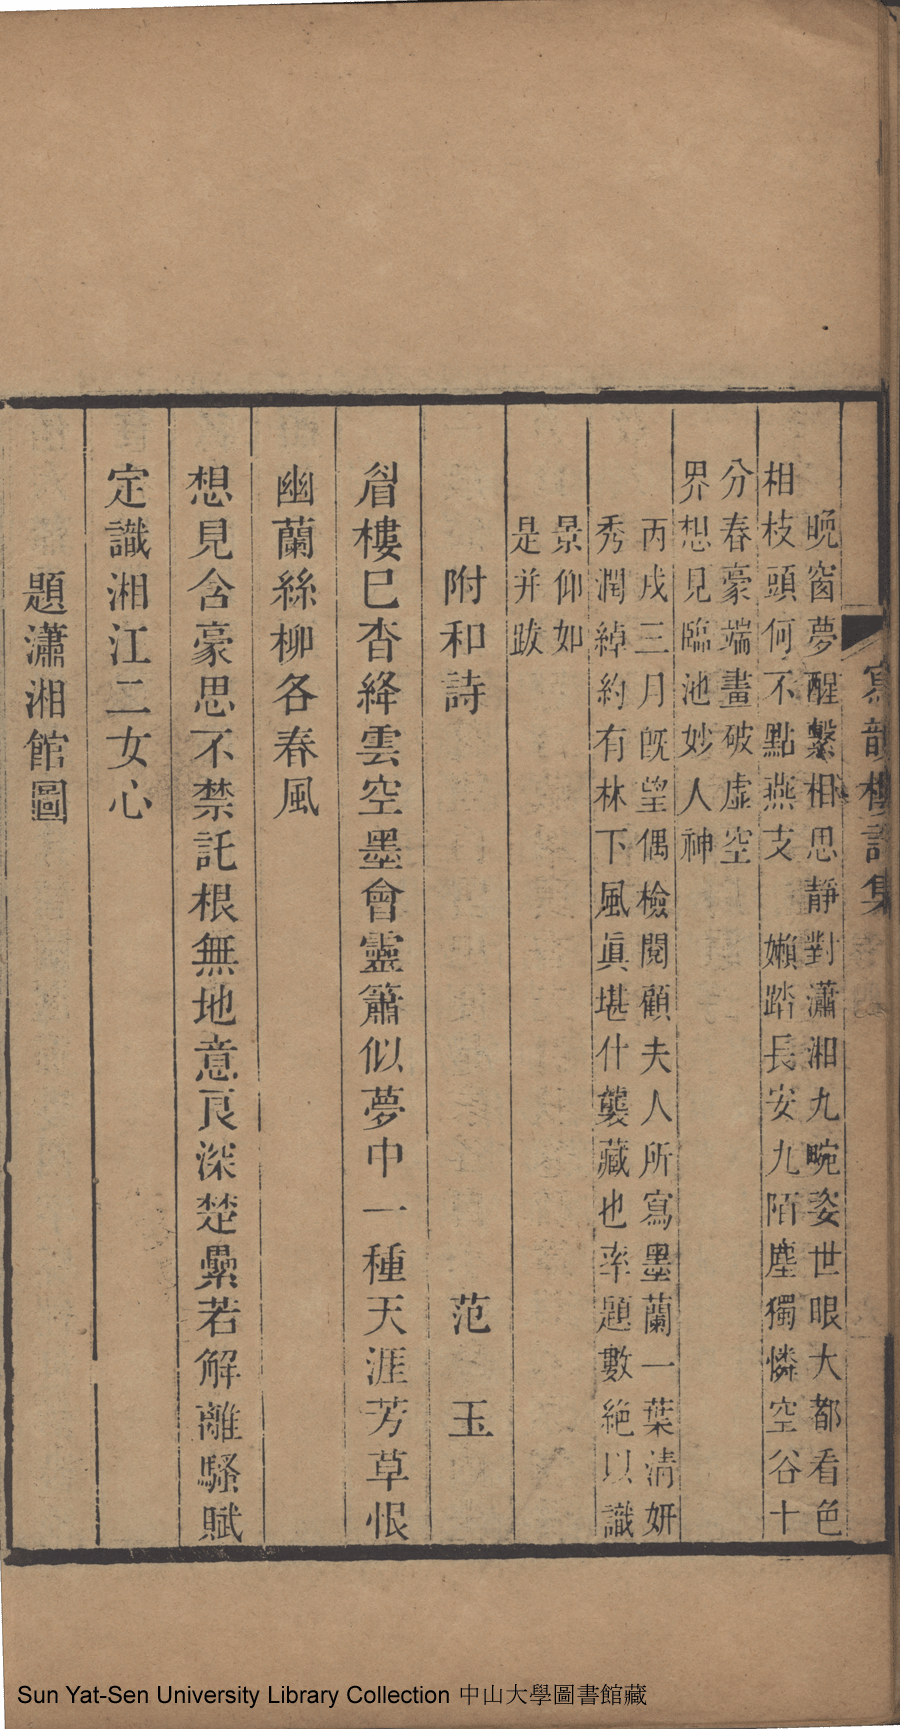 寫韻樓詩集
晚窗夢醒繫相思靜對瀟湘九畹姿世眼大都看色
相枝頭何不點燕支　嬾踏長安九陌塵獨憐空谷十
分春豪端畫破虛空
界想見臨池妙人神
丙戌三月旣望偶檢閱顧夫人所寫墨蘭一葉清妍
秀潤綽約有林下風眞堪什襲藏也率題數絶以識
景仰如
是并跋
附和詩　范　玉
眉樓巳杳絳雲空墨會靈簫似夢中一種天涯芳草恨
幽蘭絲柳各春風
想見含豪思不禁託根無地意良深楚纍若解離騷賦
定識湘江二女心
題瀟湘館圖
Sun Yat-Sen University Library Collection 中山大學圖書館藏